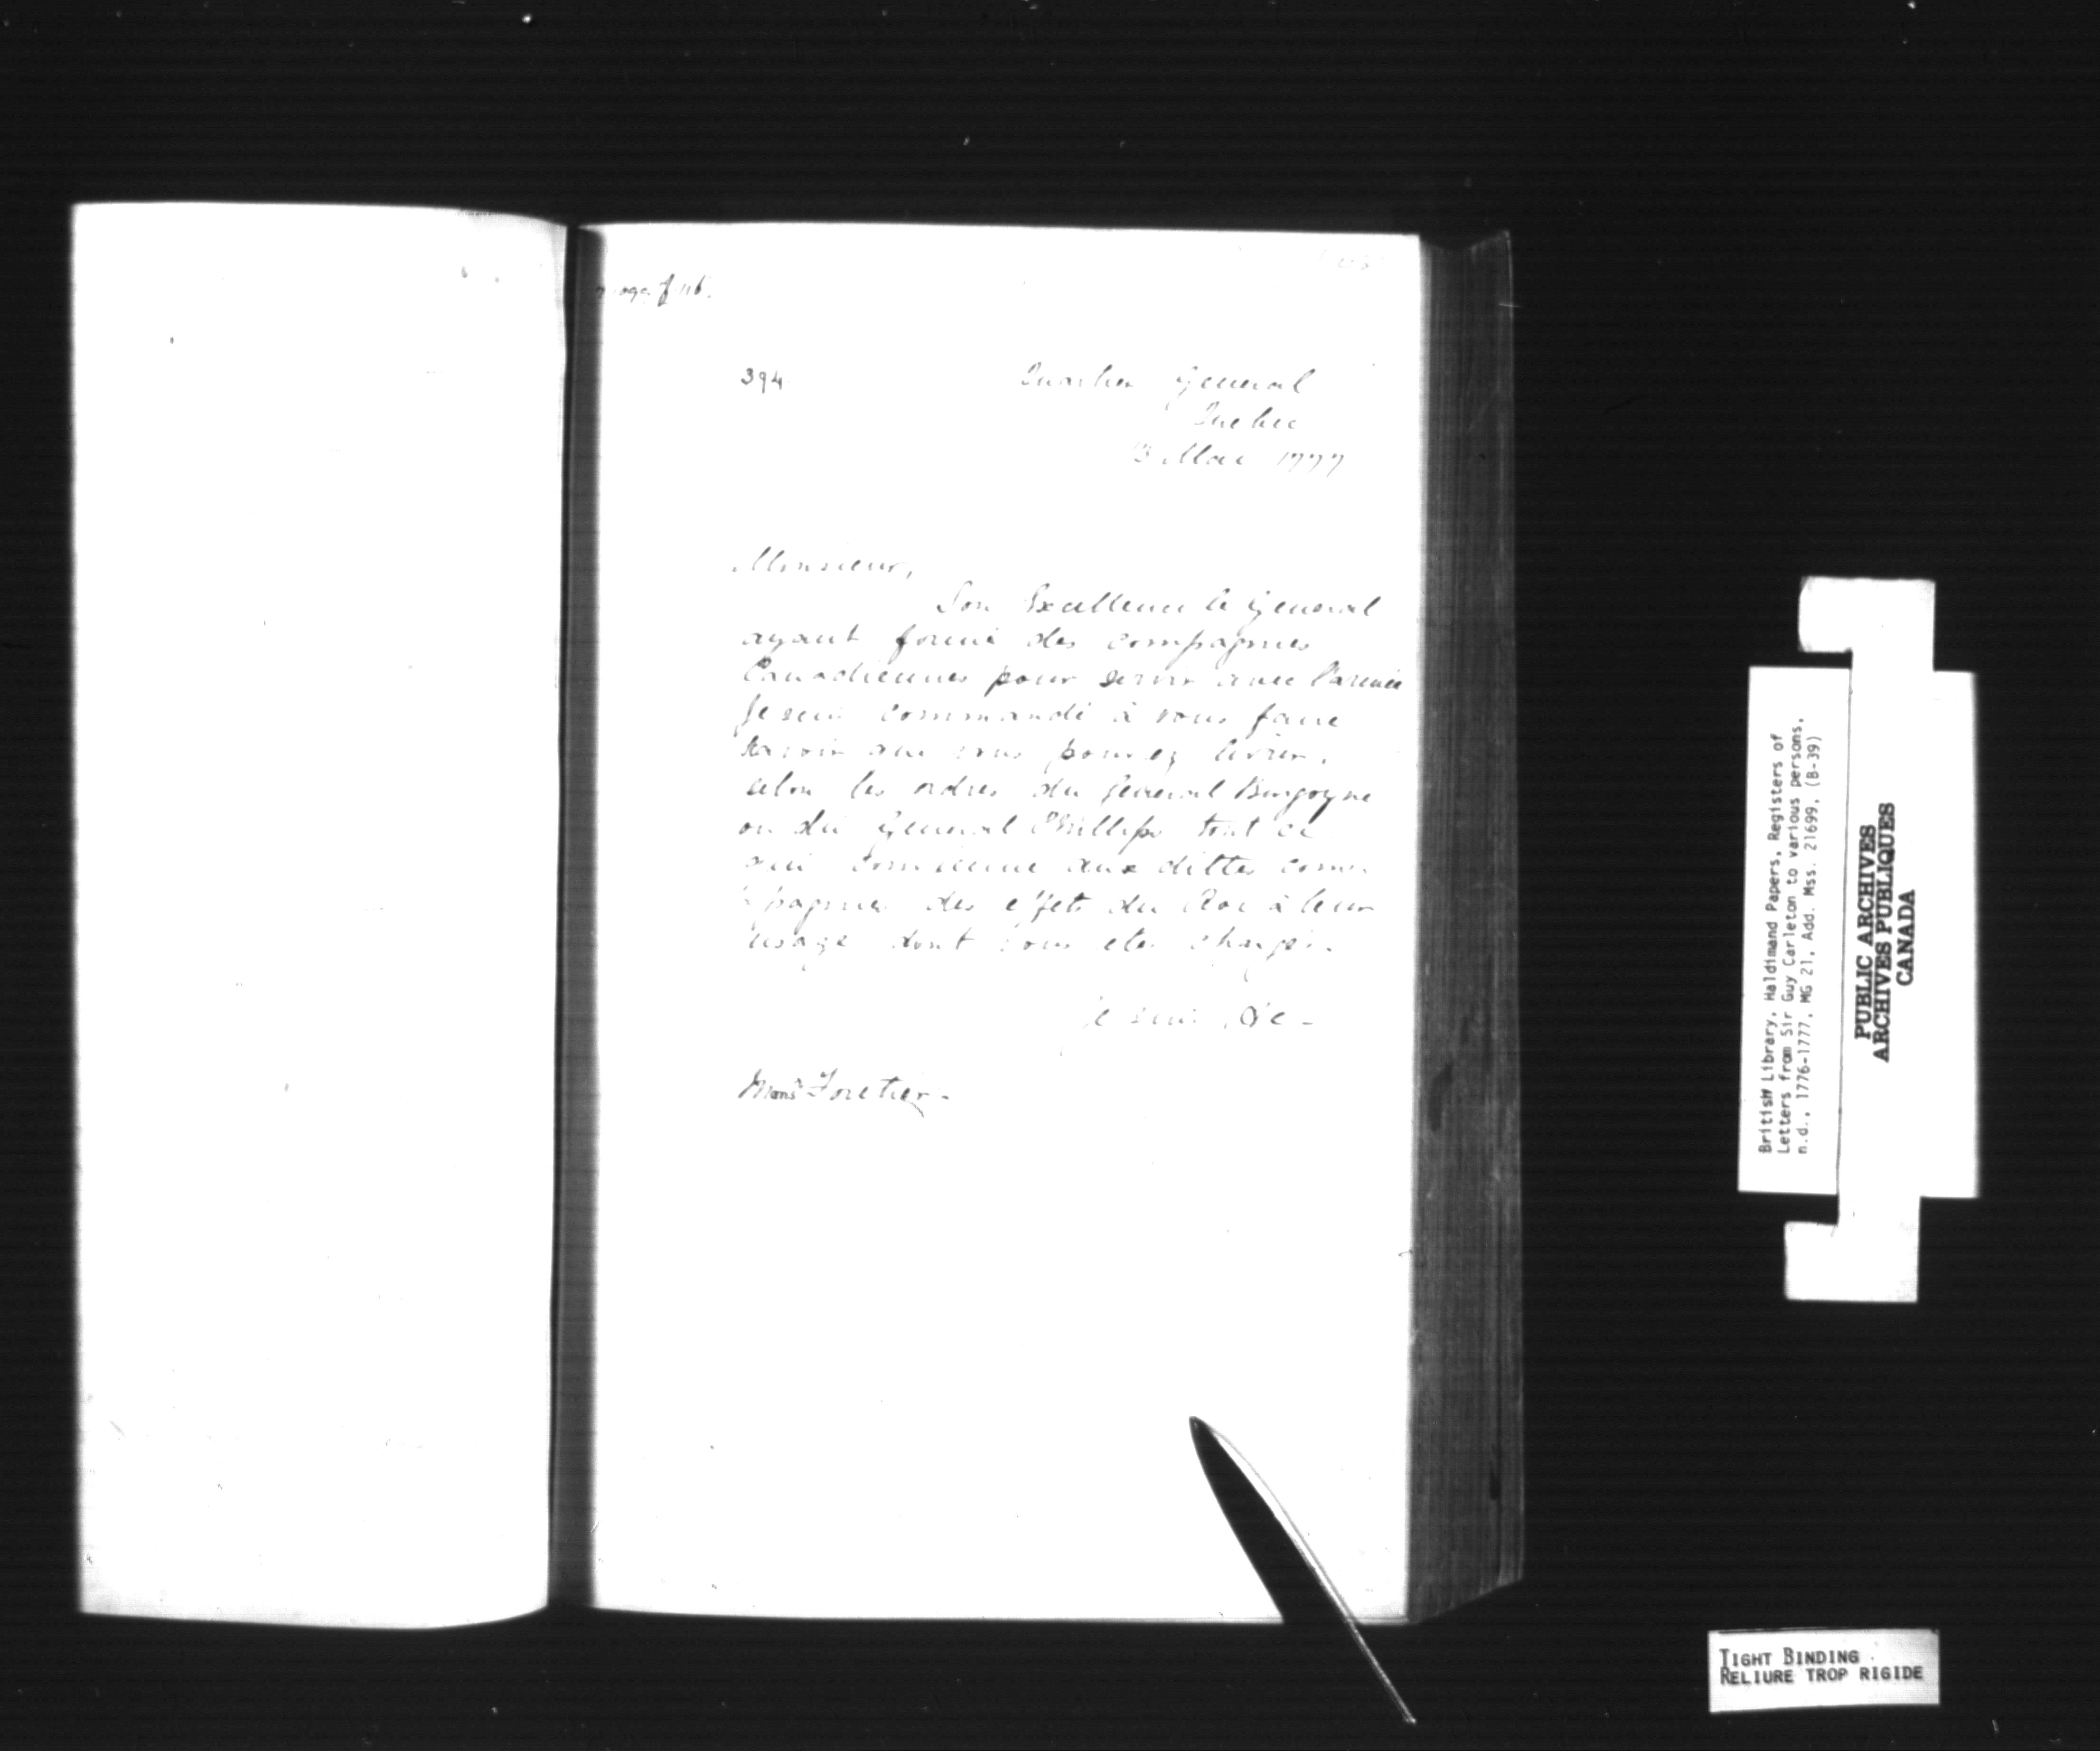 394
Quartier General
Quebec
13 Mai 1777
Monsieur,
Son Excellence le General
ayant formé des compagnies
Canadiennes pour servir avec l'armée
Je suis commandé à vous faire
savoir que vous pourez livrer,
selon les ordres du General Burgoyne
ou du General Phillips tout ce
qui convienne aux dittes com-
pagnies des effets du Roi à leur
usage dont vous etes chargés.
Je suis, &c -
Monsr Foretier -
British Library, Haldimand Papers, Registers of
Letters from Sir Guy Carleton to various persons,
n.d., 1776-1777, MG 21, Add. Mss. 21699, (B-39)
PUBLIC ARCHIVES
ARCHIVES PUBLIQUES
CANADA
TIGHT BINDING
RELIURE TROP RIGIDE